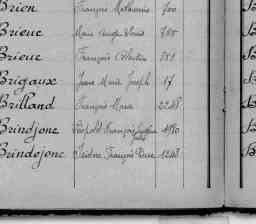 Brien François Mathurin 700
Brieuc Marie Ange Louis 785
Brieuc François Célestin 751
Brigaux Jean Marie Joseph 17
Brilland François Marie 2228
Brindjonc Léopold François 1480
Brindejonc Isidore François Pierre 1248